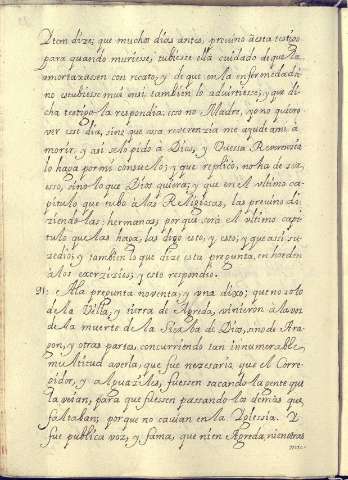 Dtem dize; que muchos dias antes, preuino â esta testigo
para quando muriesse, tubiesse ella cuidado de que la
amortaxassen con ricato; y de que en la enfermedad
no estubiesse mui assi tambien lo aduirtiesse; y que di-
cha testigo la respondia: esso no Madre, yo no quiero
ver esse dia, sino que essa reuerenzia me ayude a mi a
morir, y assi se lo pido â Dios, y Vuessa Reuerenzia
lo haga por mi consuelo; y que replicô, no ha de ser
esso, sino lo que Dios quiera; y que en el vltimo ca-
pitulo que tubo â las Religiosas, las preuino di-
ziendolas; hermanas, por que será el vltimo capi-
tulo que las haga, las digo esto, y esto; y que assi su-
zedio; y tambien lo que dize esta pregunta, en horden
â los exerzizios; y esto respondio.
91. A la pregunta nouenta, y vna dixo; que no solo
de la Villa, y tierra de Agreda, vinieron â la voz
de la muerte de la Sierba de Dios, sino de Ara-
gon, y otras partes, concurriendo tan innumerable
multitud a verla, que fue nezesario que el Corre-
gidor, y alguaziles, fuessen sacando la gente que
la veian, para que fuessen passando los demas que
faltaban; porque no cauian en la Yglessia. Y
fue publica voz, y fama, que ni en Agreda, ni en otras